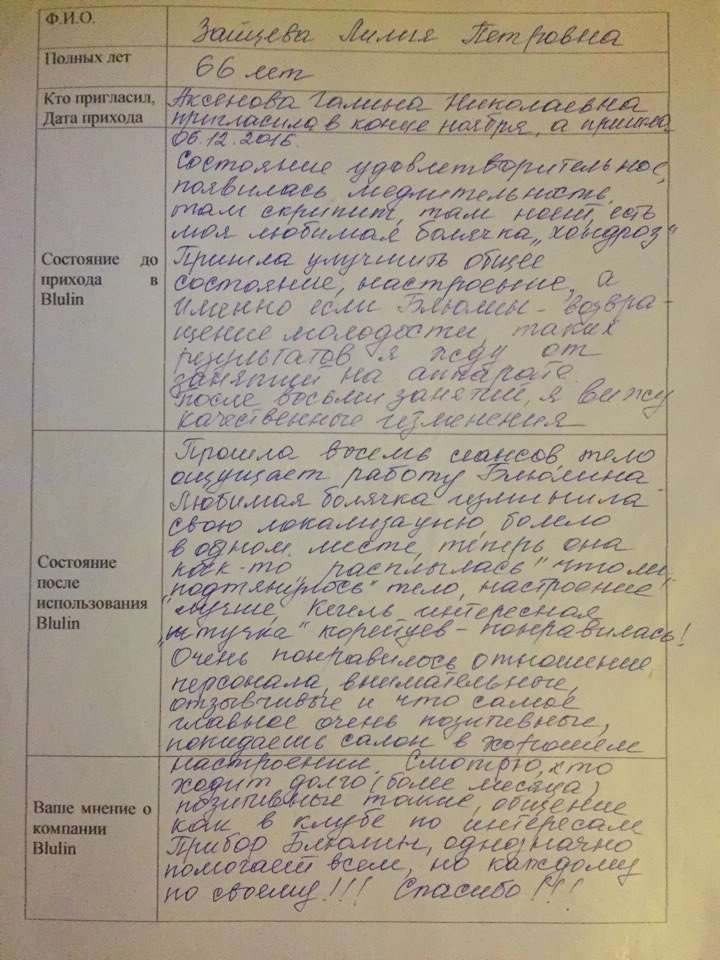 Ф.И.О.
Зайцева Лилия Петровна
Полных лет
66 лет
Кто пригласил,
Дата прихода
Аксенова Галина Николаевна
пригласила в конце ноября, а пришла
06.12.2016.
Состояние до
прихода в
Blulin
Состояние удовлетворительное,
появилась медлительность,
там скрипит, там ноет, есть
моя любимая болячка „хондроз"
Пришла улучшить общее
состояние, настроение, а
именно если Блюлины - возвра-
щение молодости, таких
результатов я жду от
занятий на аппарате.
После восьми занятий, я вижу
качественные изменения
Состояние
после
использования
Blulin
Прошла восемь сеансов тело
ощущает работу Блюлина
Любимая болячка изменила
свою локализацию, болело
в одном месте, теперь она
как-то „расплылась" что ли,
„подтянулось" тело, настроение
„лучше, Кегель интересная
„штучка" корейцев - понравилась!
Очень понравилось отношение
персонала, внимательные,
отзывчивые и что самое
главное очень позитивные,
покидаешь салон в хорошем
настроении. Смотрю, кто
Ваше мнение о
компании
Blulin
ходит долго (более месяца)
позитивные такие, общение
как в клубе по интересам
Прибор Блюлины, однозначно
помогает всем, но каждому
по своему!!! Спасибо!!!